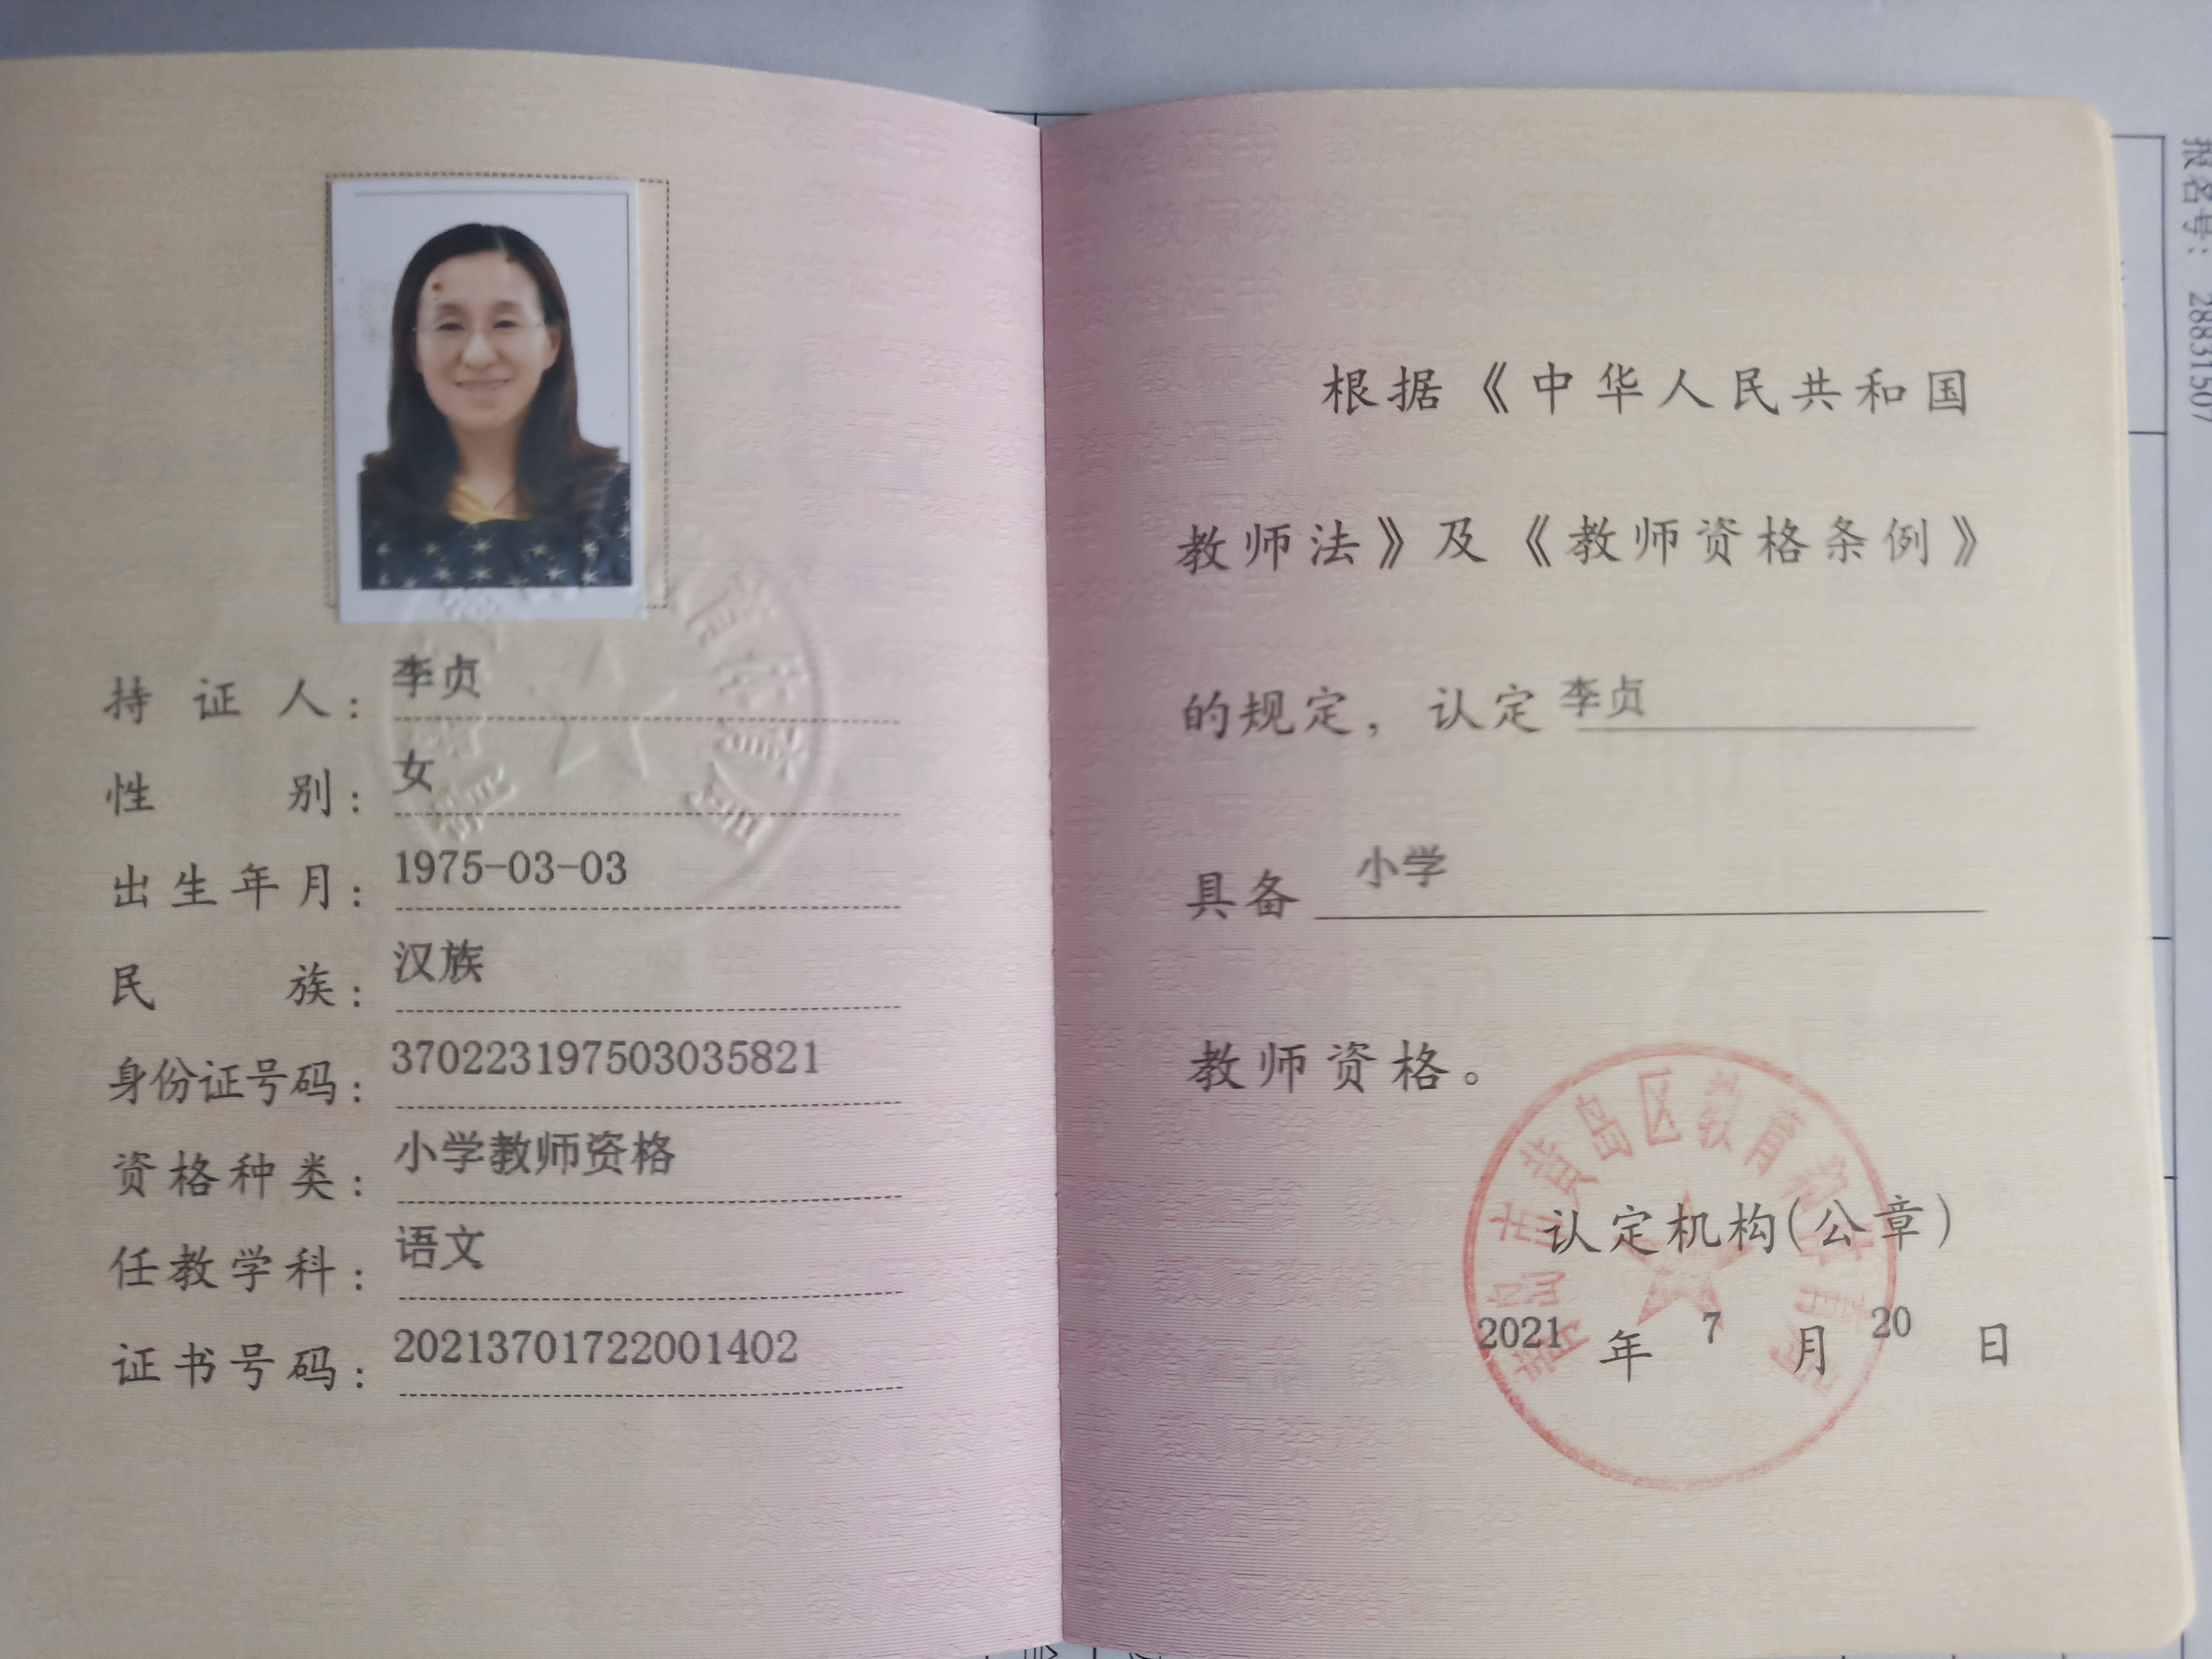 持证人：李贞
性别：女
出生年月：1975-03-03
民族：汉族
身份证号码：370223197503035821
资格种类：小学教师资格
任教学科：语文
证书号码：20213701722001402
根据《中华人民共和国
教师法》及《教师资格条例》
的规定，认定李贞
具备 小学
教师资格。
青岛市黄岛区教育和体育局
认定机构(公章)
2021 年 7 月 20 日
报名号： 28831507